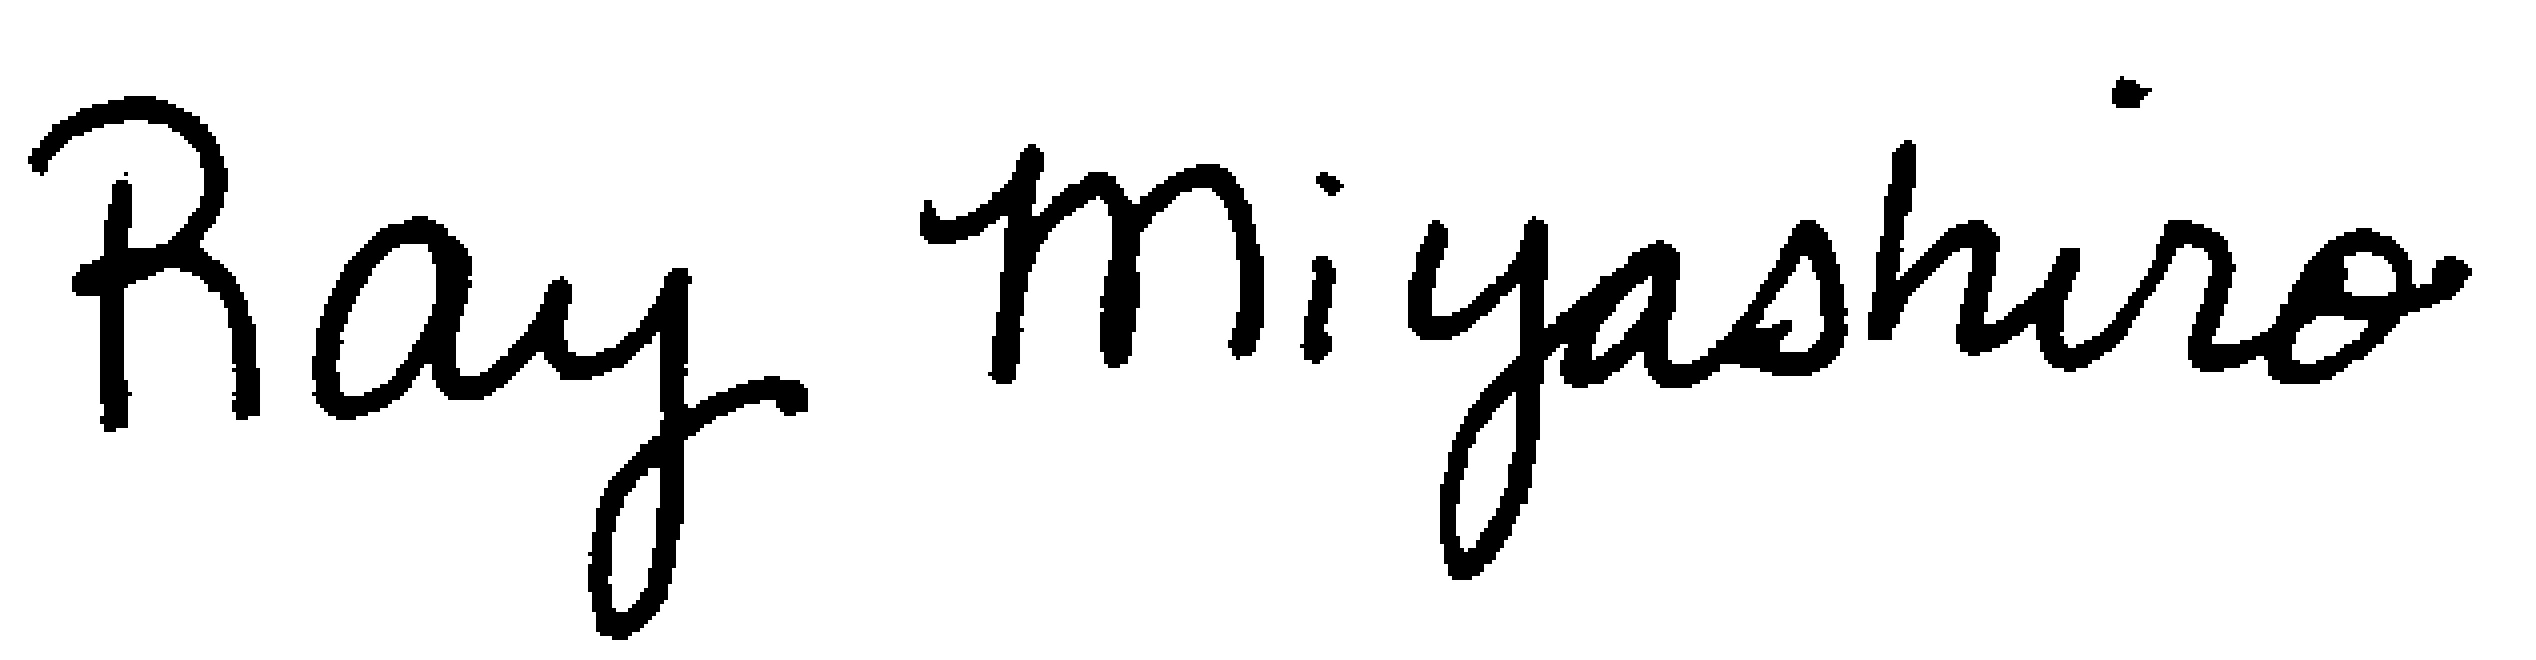 Ray Miyashiro